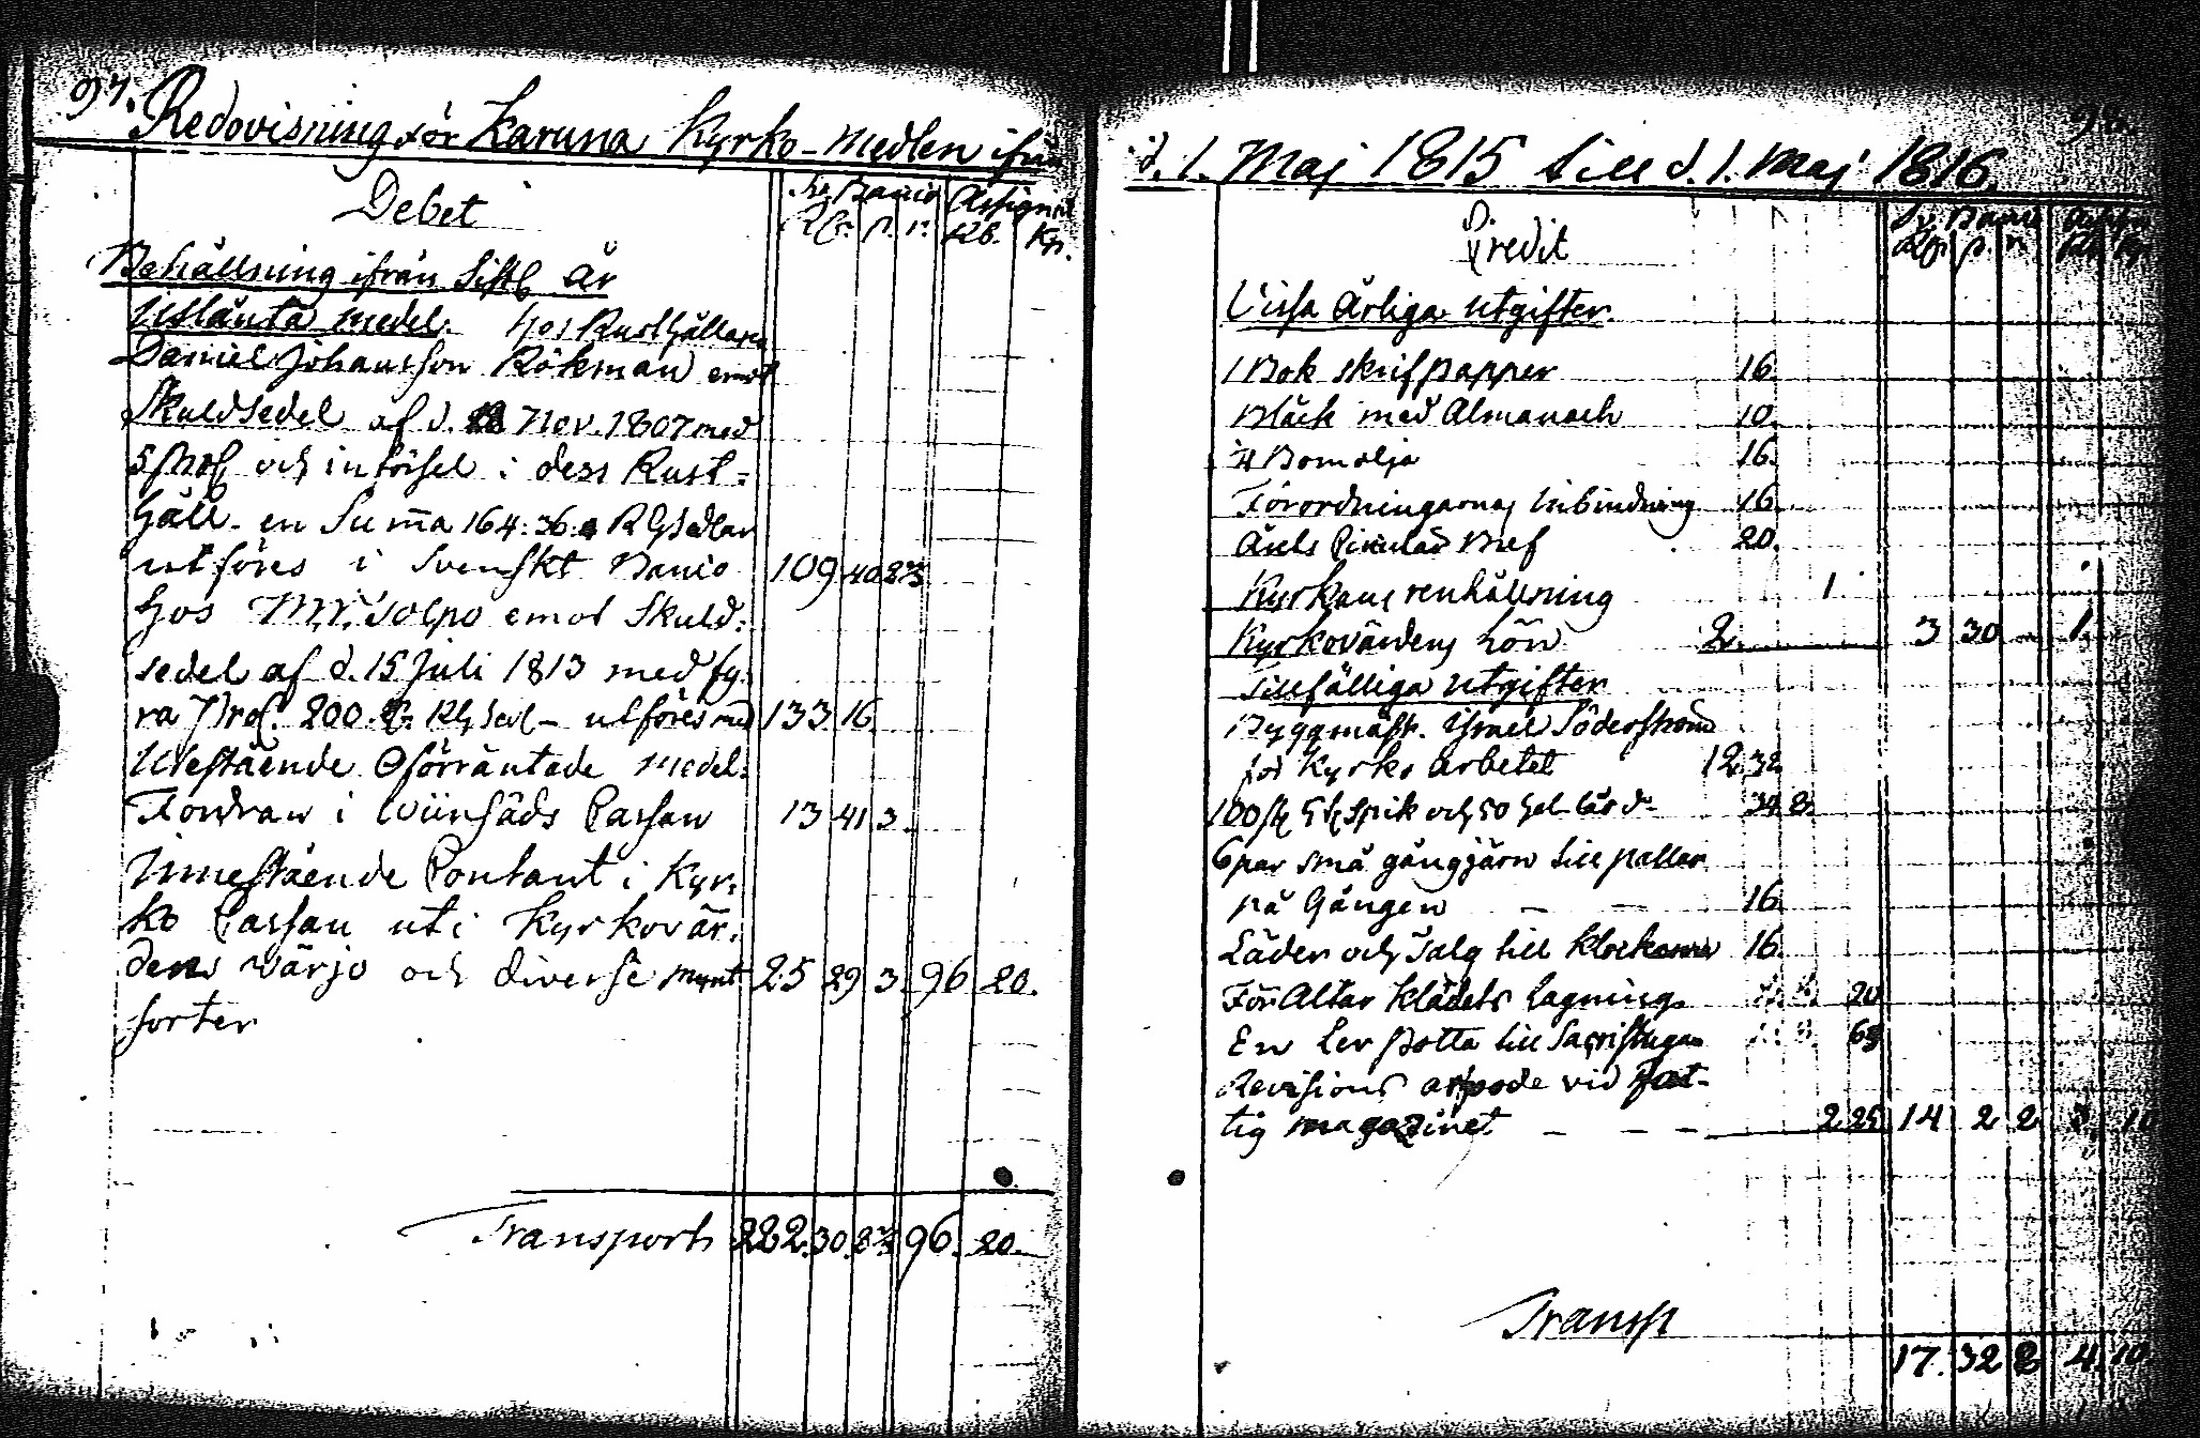 97.
Redovisning för Karuna Kyrko-Medlen ifrån
Debet
Sv. Banco Assignat
Rdr. s. r. Rb. Kp.
Behållning ifrån Sistl. År
Utlånta medel. hos Rusthållaren
Daniel Johansson Rökman emot
Skuldsedel af d. Nov. 1807 med
5 Proc och intörsel i dess Rust-
håll en Suma 164:36: RGsedlar
utföres i Svenskt Banco 109 40 8
hos Mr. Tolpo emot Skuld-
sedel af d. 15 Juli 1813 med fy-
ra Proc. 200 RG Sedl - utföres med 133. 16.
Utestående Oförräntade medel:
Fordran i Cassan 13 41 3.
Innestående Contant i Kyr-
ko Cassan uti Kyrkovär-
dens värjo och diverse mynt 25 29 3. 96 20.
sorter
Transport 282. 30. 8 96. 20.
98.
d. 1. Maj 1815 till d. 1. Maj 1816.
Credit
Sv. Banco
Rdr s. r.
Vissa Årliga Utgifter.
1 Bok skrifpapper 16.
Bläck med Almanach 10.
Bomolja 16.
Förordningarnas Inbindning 16
Årets Circulär Bref 20.
Kyrkans renhållning 1.
Kyrkovärdens Lön 2. 3 30 1.
Tillfälliga Utgifter
Byggmäst. Israel Söderström
för Kyrko arbetet 12. 32
100 st 5 t. Spik och 50 hel 8.
6 par små gångjärn till pallar
på Gången - - 16.
Läder och Talg till Klockorna 16.
För Altar Klädets lagning 20
En Ler Potta till Sacristugan
Revisions arfvode vid Fat-
tig magazinet - - - 2 25 14 2 2 3. 10
Transp
17. 32 8 4. 10